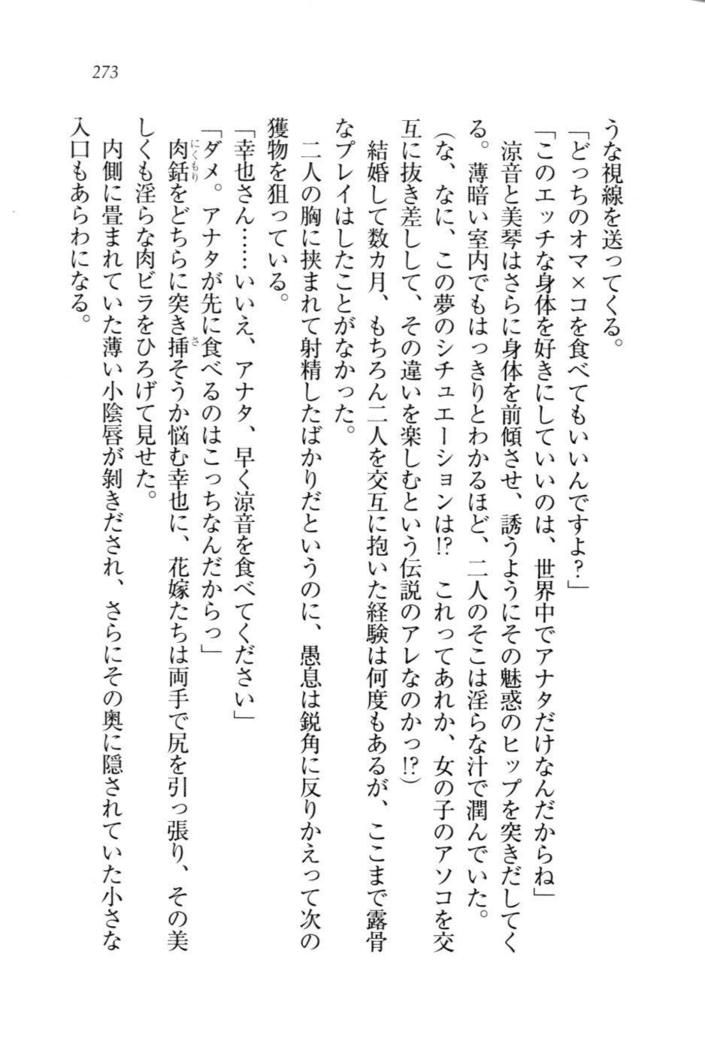 273
うな視線を送ってくる。
「どっちのオマ×コを食べてもいいんですよ？」
「このエッチな身体を好きにしていいのは、世界中でアナタだけなんだからね」
涼音と美琴はさらに身体を前傾させ、誘うようにその魅惑のヒップを突きだしてく
る。薄暗い室内でもはっきりとわかるほど、二人のそこは淫らな汁で潤んでいた。
（な、なに、この夢のシチュエーションは!?　これってあれか、女の子のアソコを交
互に抜き差しして、その違いを楽しむという伝説のアレなのかっ!?）
結婚して数カ月、もちろん二人を交互に抱いた経験は何度もあるが、ここまで露骨
なプレイはしたことがなかった。
二人の胸に挟まれて射精したばかりだというのに、愚息は鋭角に反りかえって次の
獲物を狙っている。
「幸也さん……いいえ、アナタ、早く涼音を食べてください」
「ダメ。アナタが先に食べるのはこっちなんだからっ」
肉銛をどちらに突き挿そうか悩む幸也に、花嫁たちは両手で尻を引っ張り、その美
にくもり
さ
しくも淫らな肉ビラをひろげて見せた。
内側に畳まれていた薄い小陰唇が剝きだされ、さらにその奥に隠されていた小さな
入口もあらわになる。